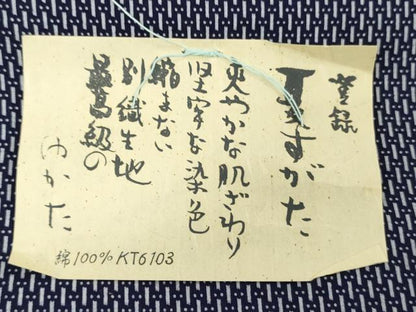 登録
夏すがた
爽やかな肌ざわり
堅牢な染色
縮まない
別織生地
最高級の
ゆかた
綿100% KT6103